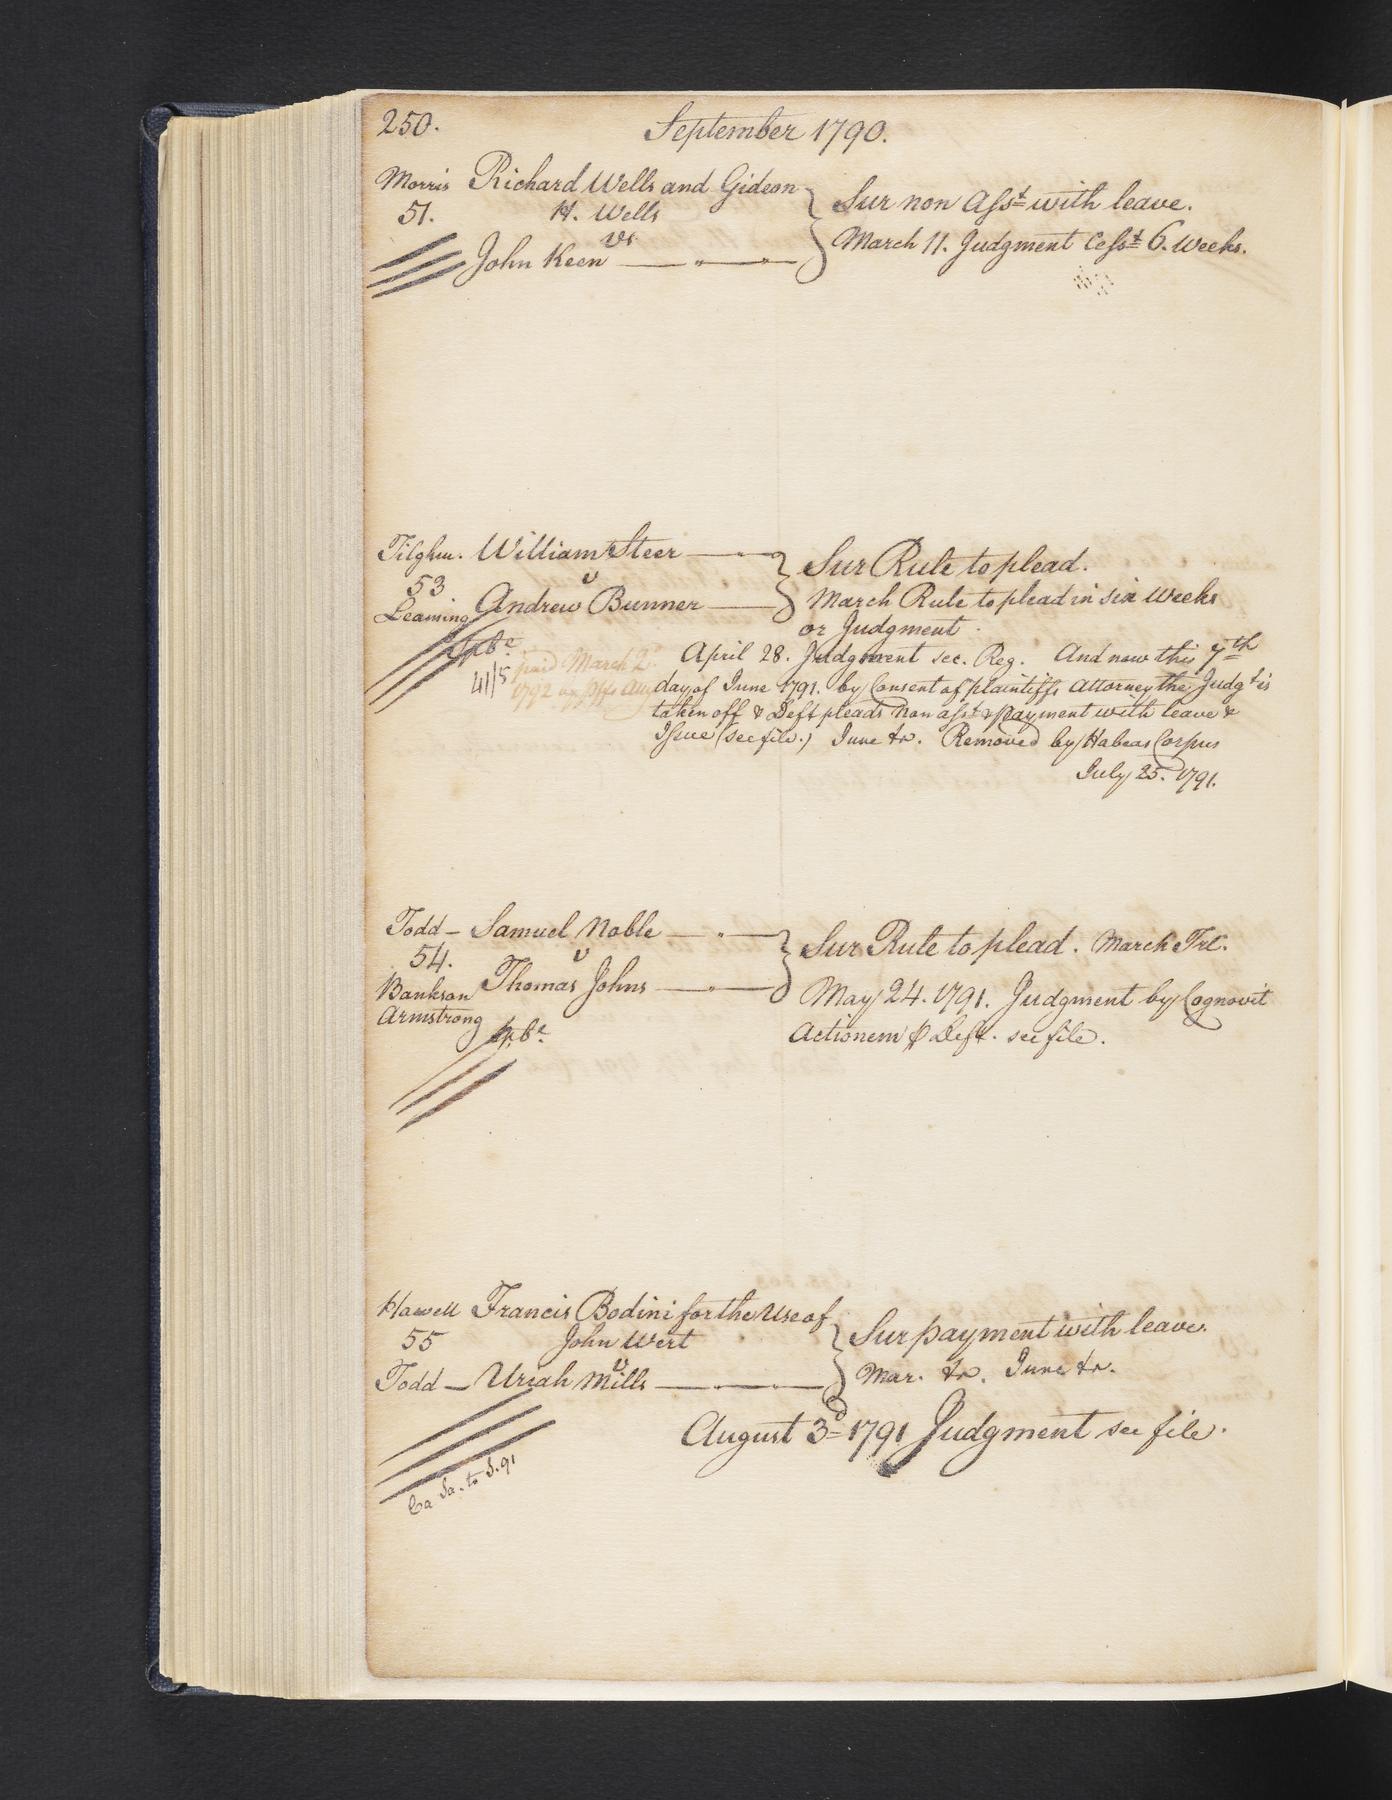 250.
September 1790.
Morris Richard Wells and Gideon
51. H. Wells
vs
John Keen
Sur non Asst with leave.
March 11. Judgment Cesst 6. Weeks.
Tilghm. William Steer
53 v
Leaming Andrew Bunner
Sur Rule to plead.
March Rule to plead in six Weeks
or Judgment
41/5
paid March 2d
1792
April 28. Judgment sec. Reg. And now this 7th
day of June 1791. by Consent of plaintiffs Attorney the Judgt is
taken off & Deft pleads non asst & payment with leave &
Issue (see file.) June tr. Removed by Habeas Corpus
July 25. 1791.
Todd - Samuel Noble
54. v
Bankson Thomas Johns
Armstrong
Sur Rule to plead. March Tre.
May 24. 1791. Judgment by Cognovit
Actionem ⅌ Deft. see file.
Howell Francis Bodini for the Use of
55 John Wert
v
Todd - Uriah Mills
Sur payment with leave.
Mar. tr. June tr.
August 3d 1791 Judgment see file.
Ca Sa. to S. 91